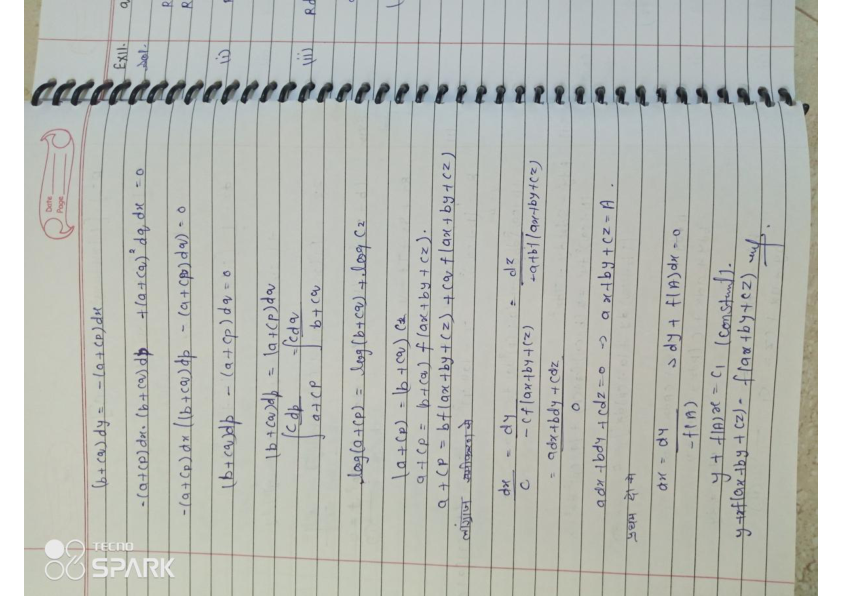 Date
Page
(b+cq)dy = -(a+cp)dx
-(a+cp)dx.(b+cq)dp + (a+cq)² dq dx = 0
-(a+cp)dx ((b+cq)dp - (a+cp)dq) = 0
(b+cq)dp - (a+cp)dq = 0
(b+cq)dp = (a+cp)dq
∫ C dp / a+cp = ∫ C dq / b+cq
log(a+cp) = log(b+cq) + log C₂
(a+cp) = (b+cq) C₂
a+cp = (b+cq) f(ax+by+cz).
a+cp = bf(ax+by+cz) + cq f(ax+by+cz)
लांग्राज समीकरण से
dx / C = dy / -cf(ax+by+cz) = dz / -a+bf(ax+by+cz)
= adx+bdy+cdz / 0
adx+bdy+cdz=0 → ax+by+cz=A.
प्रथम दो से
dx = dy / -f(A) ⇒ dy + f(A)dx = 0
y + f(A)x = C₁ (constant).
y+xf(ax+by+cz) = f(ax+by+cz)
Ex11.
Sol.
(i)
(ii)
TECNO
SPARK